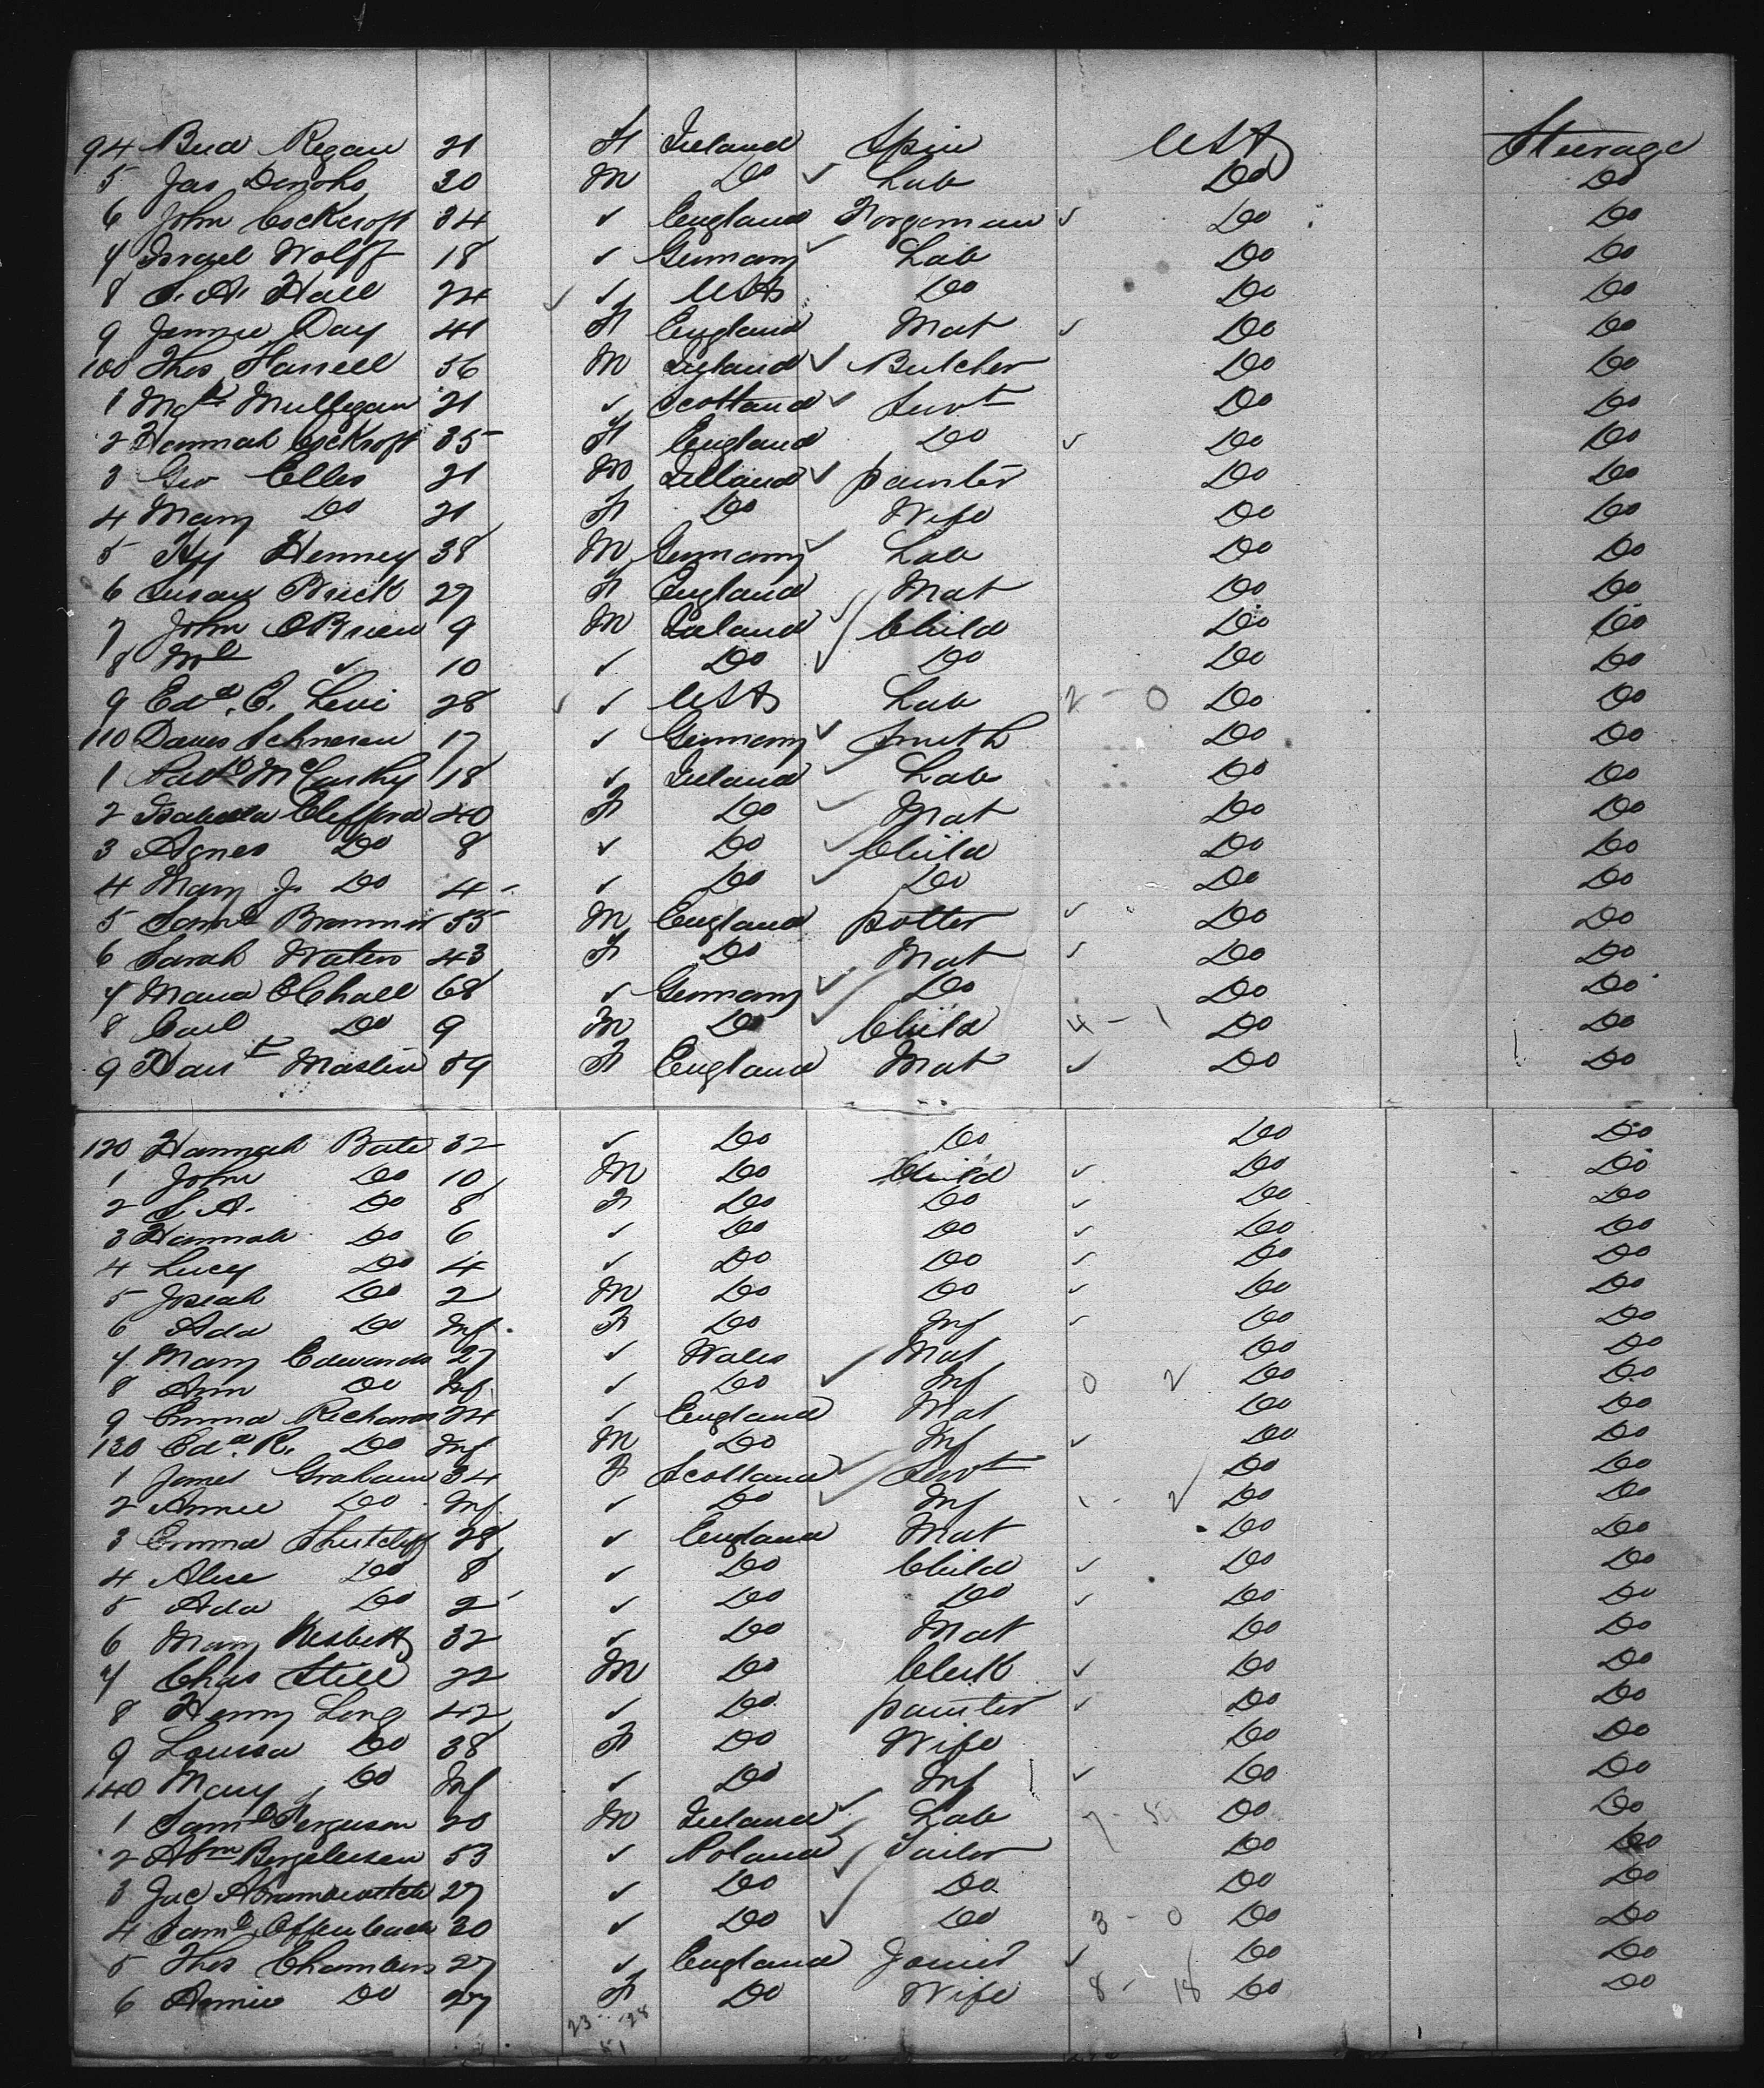 94 Brid Regan 21 F Ireland Spin USA Steerage
5 Jas Donoho 30 M Do ✓ Lab Do Do
6 John Cockcroft 34 ✓ England Forgeman ✓ Do Do
7 Israel Wolff 18 ✓ Germany ✓ Lab Do Do
8 S. A. Hall 24 ✓ ✓ USA Do Do Do
9 Jennie Day 41 F England Mat ✓ Do Do
100 Thos Farrell 56 M Ireland ✓ Butcher Do Do
1 Mgt Mulligan 21 ✓ Scotland ✓ Servt Do Do
2 Hannah Cockroft 35 F England Do ✓ Do Do
3 Geo Elles 21 M Ireland ✓ painter Do Do
4 Mary Do 21 F Do Wife Do Do
5 Hy Henney 38 M Germany ✓ Lab Do Do
6 Susan Brick 27 F England Mat Do Do
7 John OBrien 9 M Ireland ✓ Child Do Do
8 Ml ✓ 10 ✓ Do ✓ Do Do Do
9 Edd. E. Levi 28 ✓ ✓ USA Lab 2 - 0 Do Do
110 17 ✓ Germany ✓ Smith Do Do
1 Patk McCarthy 18 ✓ Ireland ✓ Lab Do Do
2 Isabella Clifford 40 F Do ✓ Mat Do Do
3 Agnes Do 8 ✓ Do ✓ Child Do Do
4 Mary J. Do 4 ✓ Do ✓ Do Do Do
5 Saml 55 M England potter ✓ Do Do
6 Sarah Waters 43 F Do Mat ✓ Do Do
7 Maria 68 ✓ Germany ✓ Do Do Do
8 Carl Do 9 M Do ✓ Child 4 - 1 Do Do
9 Harrt Maslin 59 F England Mat ✓ Do Do
120 Hannah Bate 32 ✓ Do Do Do Do
1 John Do 10 M Do Child ✓ Do Do
2 S. A. Do 8 F Do Do ✓ Do Do
3 Hannah Do 6 ✓ Do Do ✓ Do Do
4 Lucy Do 4 ✓ Do Do ✓ Do Do
5 Josiah Do 2 M Do Do ✓ Do Do
6 Ada Do Inf. F Do Inf ✓ Do Do
7 Mary Edwards 27 ✓ Wales ✓ Mat Do Do
8 Ann Do Inf. ✓ Do ✓ Inf 0 2 Do Do
9 Emma Richards 24 ✓ England Mat Do Do
130 Edd. R. Do Inf M Do Inf ✓ Do Do
1 Graham 34 F Scotland ✓ Servt Do Do
2 Annie Do Inf. ✓ Do ✓ Inf 2 Do Do
3 Emma Shutcliff 28 ✓ England Mat Do Do
4 Alice Do 8 ✓ Do Child ✓ Do Do
5 Ada Do 2 ✓ Do Do ✓ Do Do
6 Mary Nesbitt 32 ✓ Do Mat Do Do
7 Chas Still 22 M Do Clerk ✓ Do Do
8 Henry Long 42 ✓ Do painter ✓ Do Do
9 Louisa Do 38 F Do Wife Do Do
140 Mary Do Inf ✓ Do Inf ✓ Do Do
1 Saml Ferguson 20 M Ireland ✓ Lab Do Do
2 Abm 53 ✓ Poland ✓ Tailor Do Do
3 Jac 27 ✓ Do ✓ Do Do Do
4 Saml Offenbach 30 ✓ Do ✓ Do 3 - 0 Do Do
5 Thos Chambers 27 ✓ England Joiner ✓ Do Do
6 Annie Do 27 F Do Wife 8 - 18 Do Do
23 - 28
51